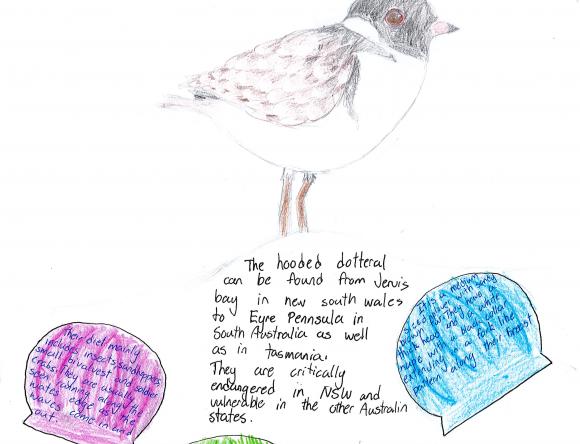 The hooded dotteral
can be found from Jervis
bay in new south wales
to Eyre Pennsula in
South Australia as well
as in tasmania.
They are critically
endangered in NSW and
vulnerable in the other Australin
states.
Their diet mainly
includes insects, sandhoppers,
small bivalves and soldier
crabs. They are usually
seen running along the
waters edge as the
waves come in and
out.
This is a medium
sized with sandy
They have a
black head and a white
with a black collar
in a fork like
pattern along their breast